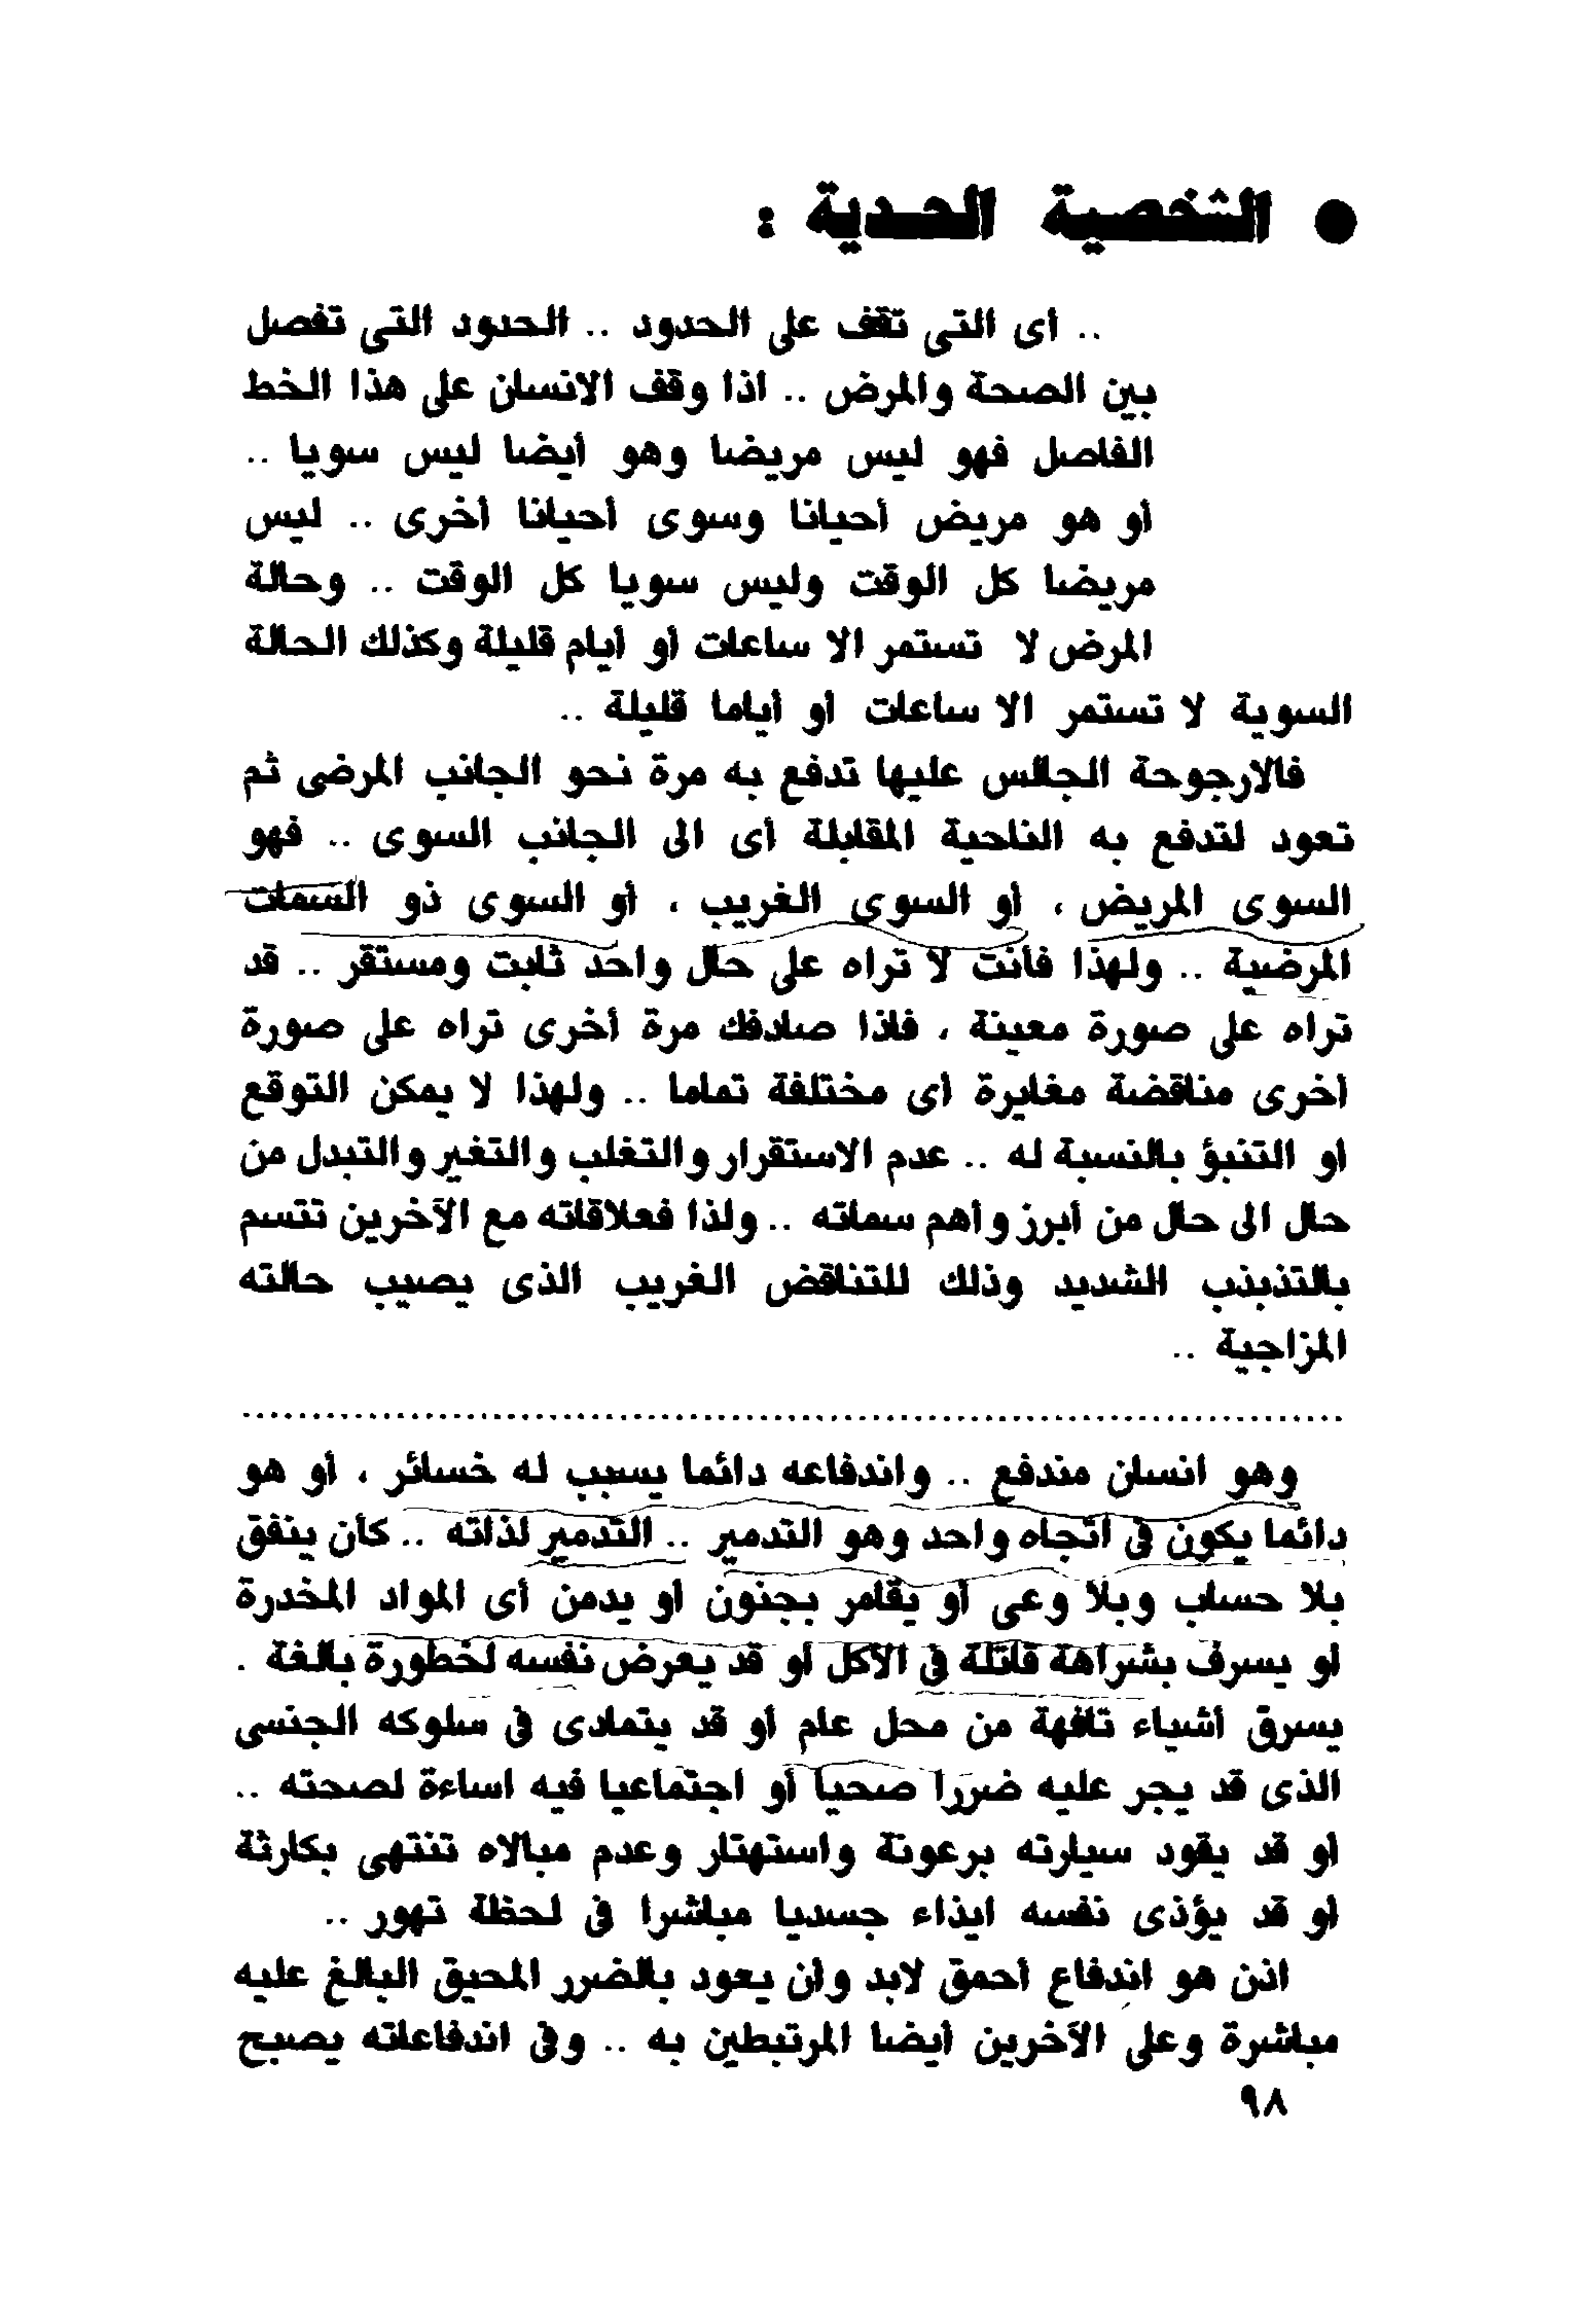 ● الشخصية الحدية :
.. اى التى تقف على الحدود .. الحدود التى تفصل
بين الصحة والمرض .. اذا وقف الانسان على هذا الخط
الفاصل فهو ليس مريضا وهو أيضا ليس سويا ..
أو هو مريض أحيانا وسوى أحيانا أخرى .. ليس
مريضا كل الوقت وليس سويا كل الوقت .. وحالة
المرض لا تستمر الا ساعات أو أيام قليلة وكذلك الحالة
السوية لا تستمر الا ساعات أو أياما قليلة ..
فالارجوحة الجالس عليها تدفع به مرة نحو الجانب المرضى ثم
تعود لتدفع به الناحية المقابلة أى الى الجانب السوى .. فهو
السوى المريض ، أو السوى الغريب ، أو السوى ذو السمات
المرضية .. ولهذا فأنت لا تراه على حال واحد ثابت ومستقر .. قد
تراه على صورة معينة ، فاذا صادفك مرة أخرى تراه على صورة
أخرى مناقضة مغايرة أى مختلفة تماما .. ولهذا لا يمكن التوقع
او التنبؤ بالنسبة له .. عدم الاستقرار والتغلب والتغير والتبدل من
حال الى حال من أبرز وأهم سماته .. ولذا فعلاقاته مع الآخرين تتسم
بالتذبذب الشديد وذلك للتناقض الغريب الذى يصيب حالته
المزاجية ..
..............................
وهو انسان مندفع .. واندفاعه دائما يسبب له خسائر ، أو هو
دائما يكون فى اتجاه واحد وهو التدمير .. التدمير لذاته .. كأن ينفق
بلا حساب وبلا وعى أو يقامر بجنون أو يدمن أى المواد المخدرة
أو يسرف بشراهة قاتلة فى الأكل أو قد يعرض نفسه لخطورة بالغة .
يسرق أشياء تافهة من محل عام أو قد يتمادى فى سلوكه الجنسى
الذى قد يجر عليه ضررا صحيا أو اجتماعيا فيه اساءة لصحته ..
أو قد يقود سيارته برعونة واستهتار وعدم مبالاه تنتهى بكارثة
أو قد يؤذى نفسه ايذاء جسديا مباشرا فى لحظة تهور ..
اذن هو اندفاع أحمق لابد وأن يعود بالضرر المحيق البالغ عليه
مباشرة وعلى الآخرين أيضا المرتبطين به .. وفى اندفاعاته يصبح
٩٨